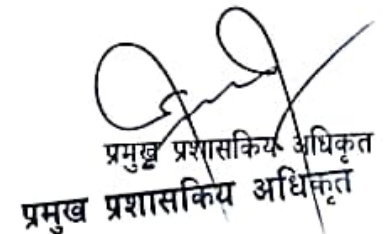 प्रमुख प्रशासकिय अधिकृत
प्रमुख प्रशासकिय अधिकृत